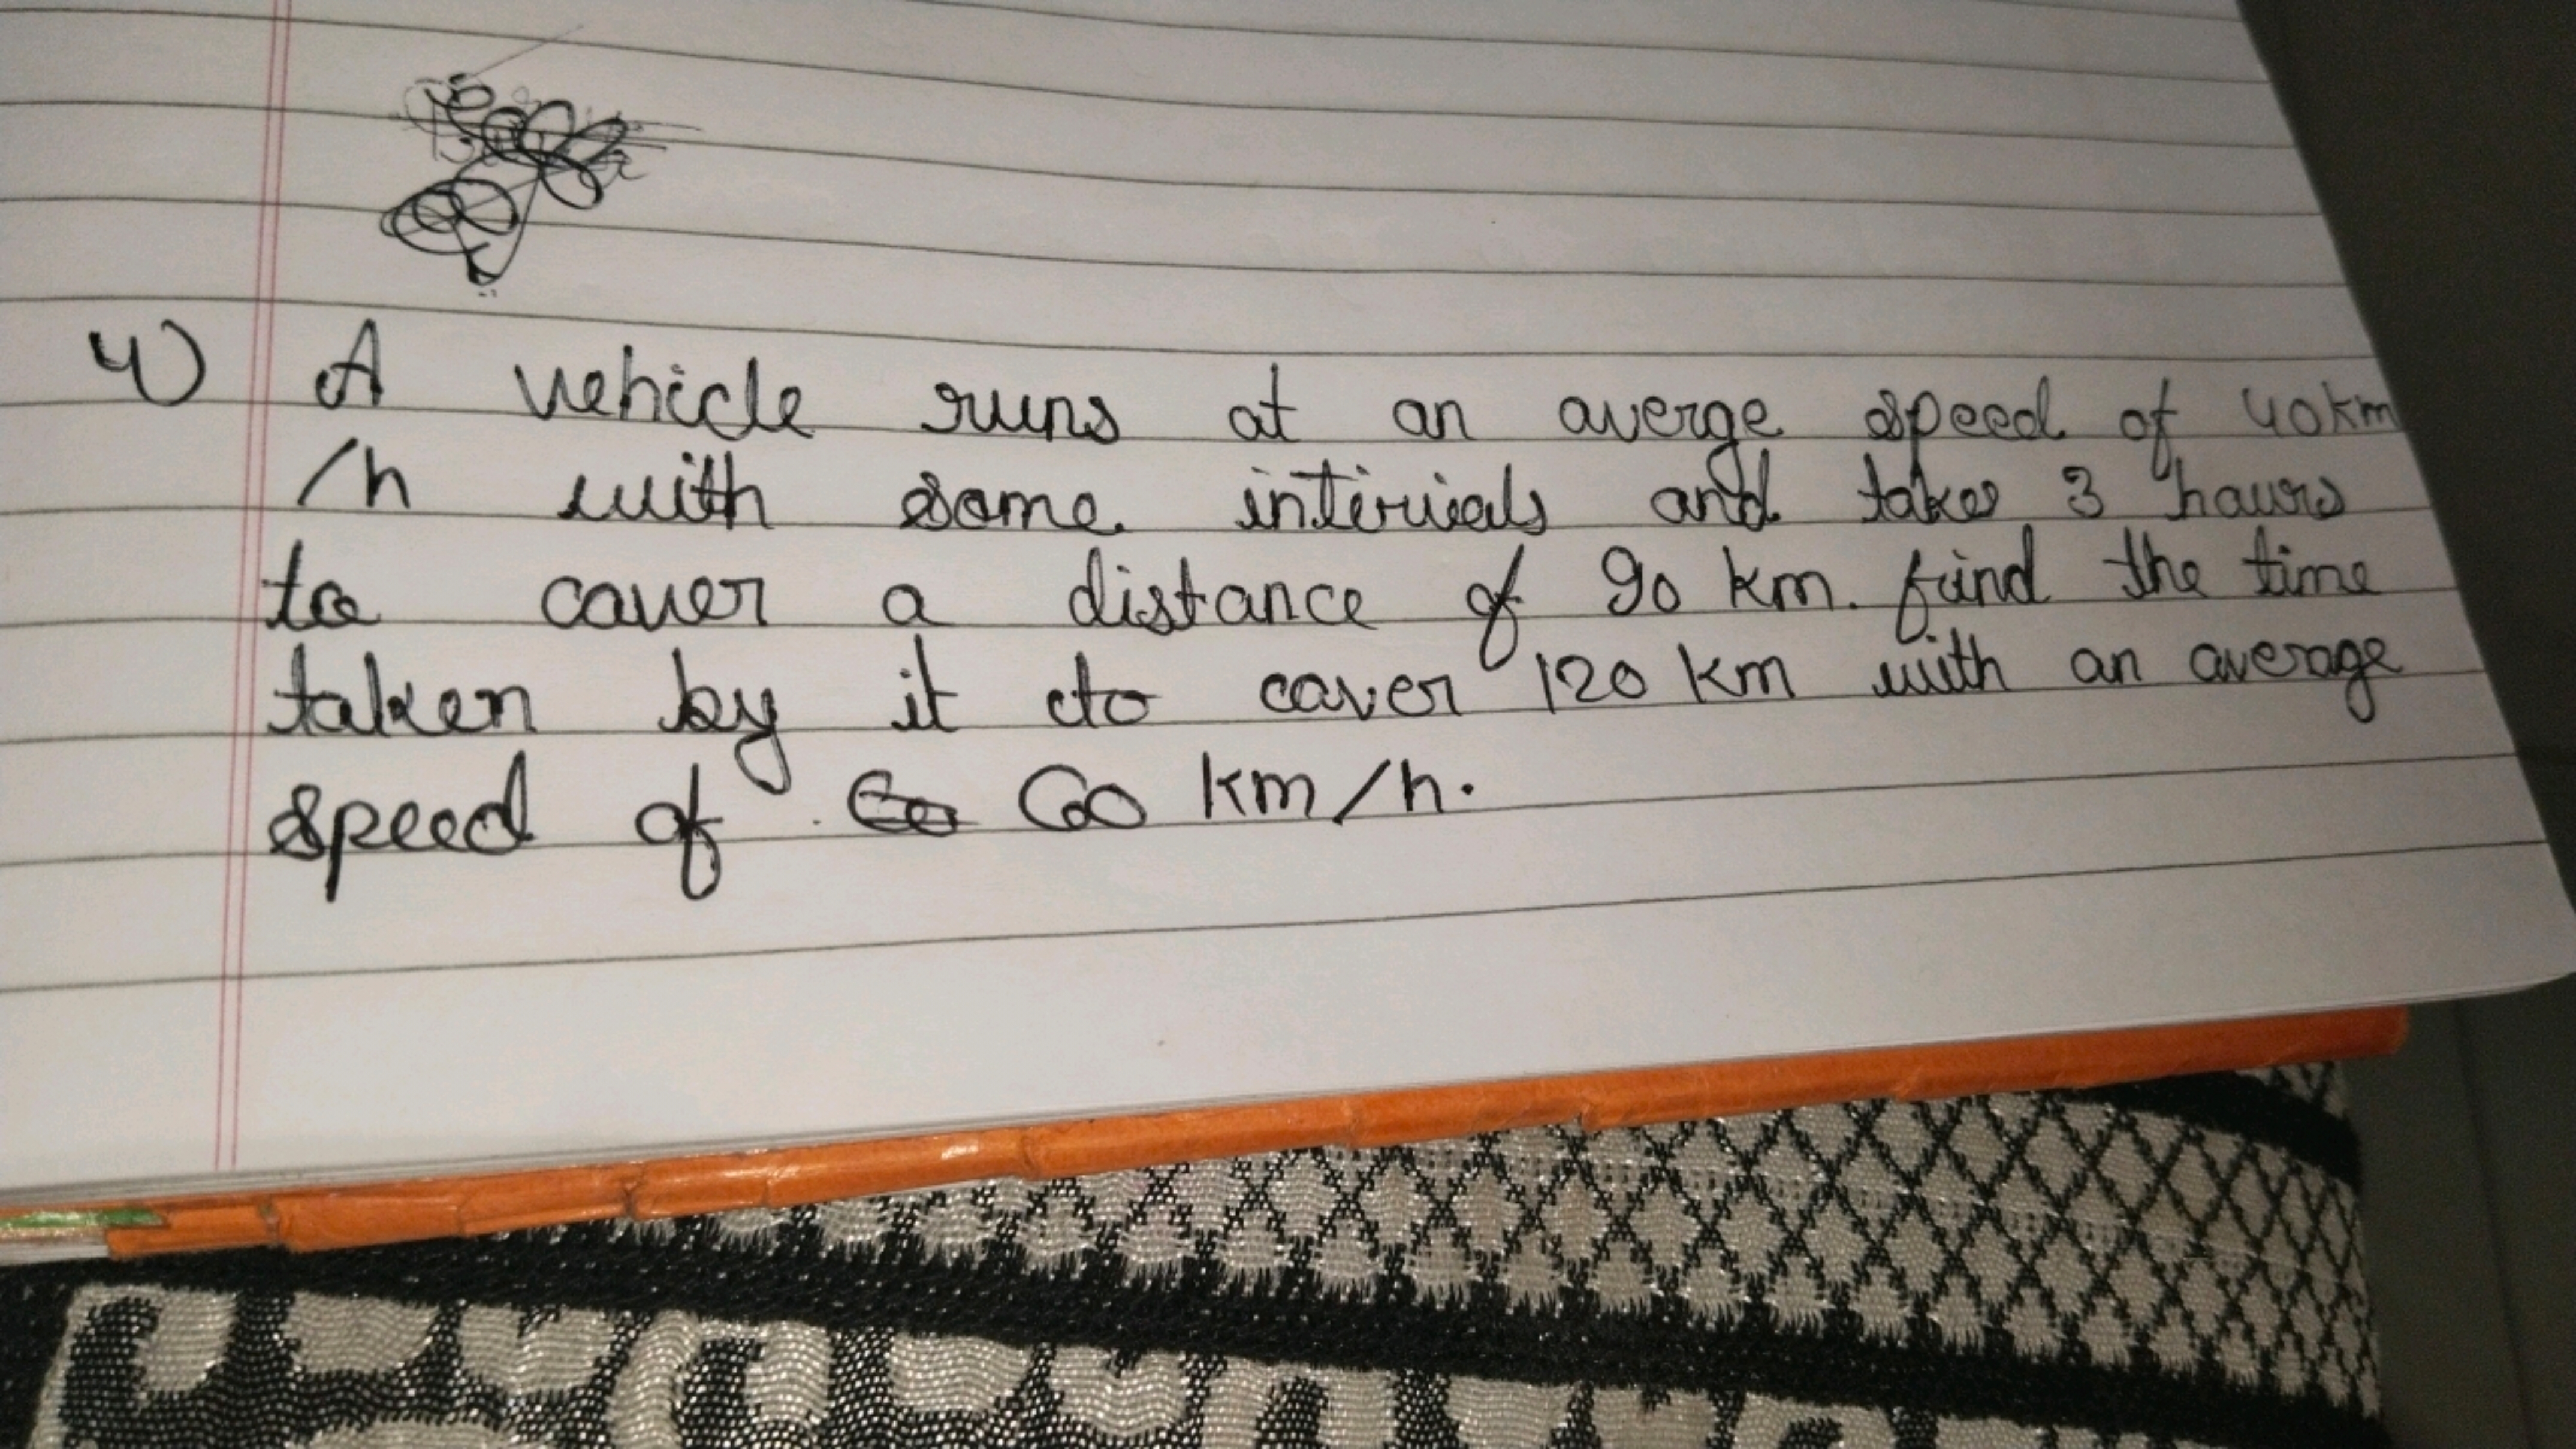 4) A vehicle runs at an averge speed of 40km
/h with some intervials and takes 3 hours
to cover a distance of 90 km. find the time
taken by it to cover 120 km with an average
speed of 60 km/h.